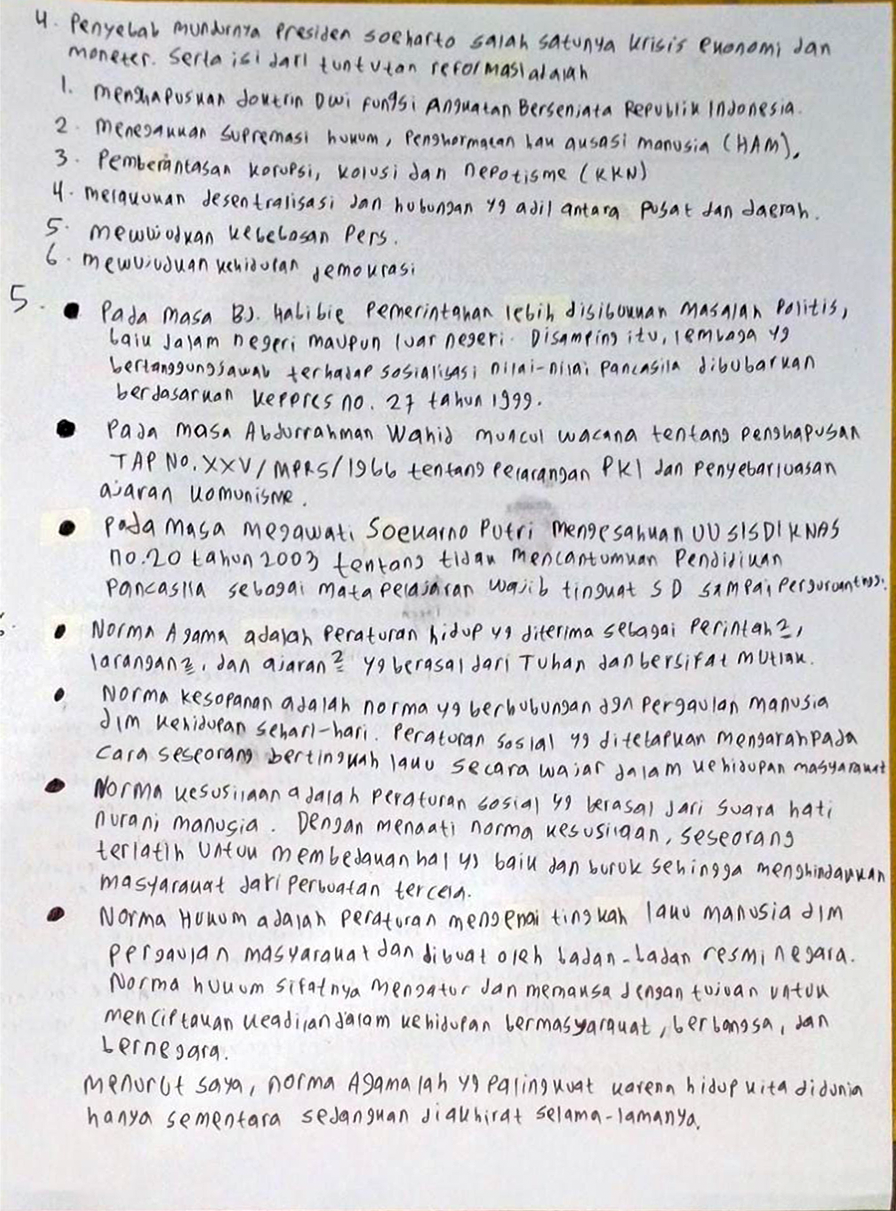 4. Penyebab mundurnya Presiden Soeharto salah satunya krisis ekonomi dan
moneter. Serta isi dari tuntutan reformasi adalah
1. menghapuskan doktrin Dwi Fungsi Angkatan Bersenjata Republik Indonesia.
2. Menegakkan supremasi hukum, Penghormatan hak ausasi manusia (HAM),
3. Pemberantasan korupsi, kolusi dan nepotisme (KKN)
4. melakukan desentralisasi dan hubungan yg adil antara pusat dan daerah.
5. mewujudkan kebebasan Pers.
6. mewujudkan kehidupan demokrasi
5. • Pada masa BJ. Habibie Pemerintahan lebih disibukkan masalah Politis,
baik dalam negeri maupun luar negeri. Disamping itu, lembaga yg
bertanggungjawab terhadap sosialisasi nilai-nilai pancasila dibubarkan
berdasarkan Keppres no. 27 tahun 1999.
• Pada masa Abdurrahman Wahid muncul wacana tentang penghapusan
TAP NO.XXV/MPRS/1966 tentang pelarangan PKI dan penyebarluasan
ajaran komunisme.
• Pada masa megawati Soekarno Putri mengesahkan UU SISDIKNAS
no.20 tahun 2003 tentang tidak mencantumkan Pendidikan
Pancasila sebagai mata pelajaran wajib tingkat SD sampai
• Norma Agama adalah Peraturan hidup yg diterima sebagai Perintah2,
larangan2, dan ajaran2 yg berasal dari Tuhan dan bersifat mutlak.
• Norma kesopanan adalah norma yg berhubungan dgn Pergaulan manusia
dlm kehidupan sehari-hari. Peraturan sosial yg ditetapkan mengarah pada
cara seseorang bertingkah laku secara wajar dalam kehidupan masyarakat
• Norma kesusilaan adalah Peraturan sosial yg berasal dari suara hati
nurani manusia. Dengan menaati norma kesusilaan, seseorang
terlatih untuk membedakan hal yg baik dan buruk sehingga menghindarkan
masyarakat dari perbuatan tercela.
• Norma Hukum adalah Peraturan mengenai tingkah laku manusia dlm
pergaulan masyarakat dan dibuat oleh badan-badan resmi negara.
Norma hukum sifatnya mengatur dan memaksa dengan tujuan untuk
menciptakan keadilan dalam kehidupan bermasyarakat, berbangsa, dan
bernegara.
Menurut saya, norma Agama lah yg paling kuat karena hidup kita didunia
hanya sementara sedangkan diakhirat selama-lamanya.